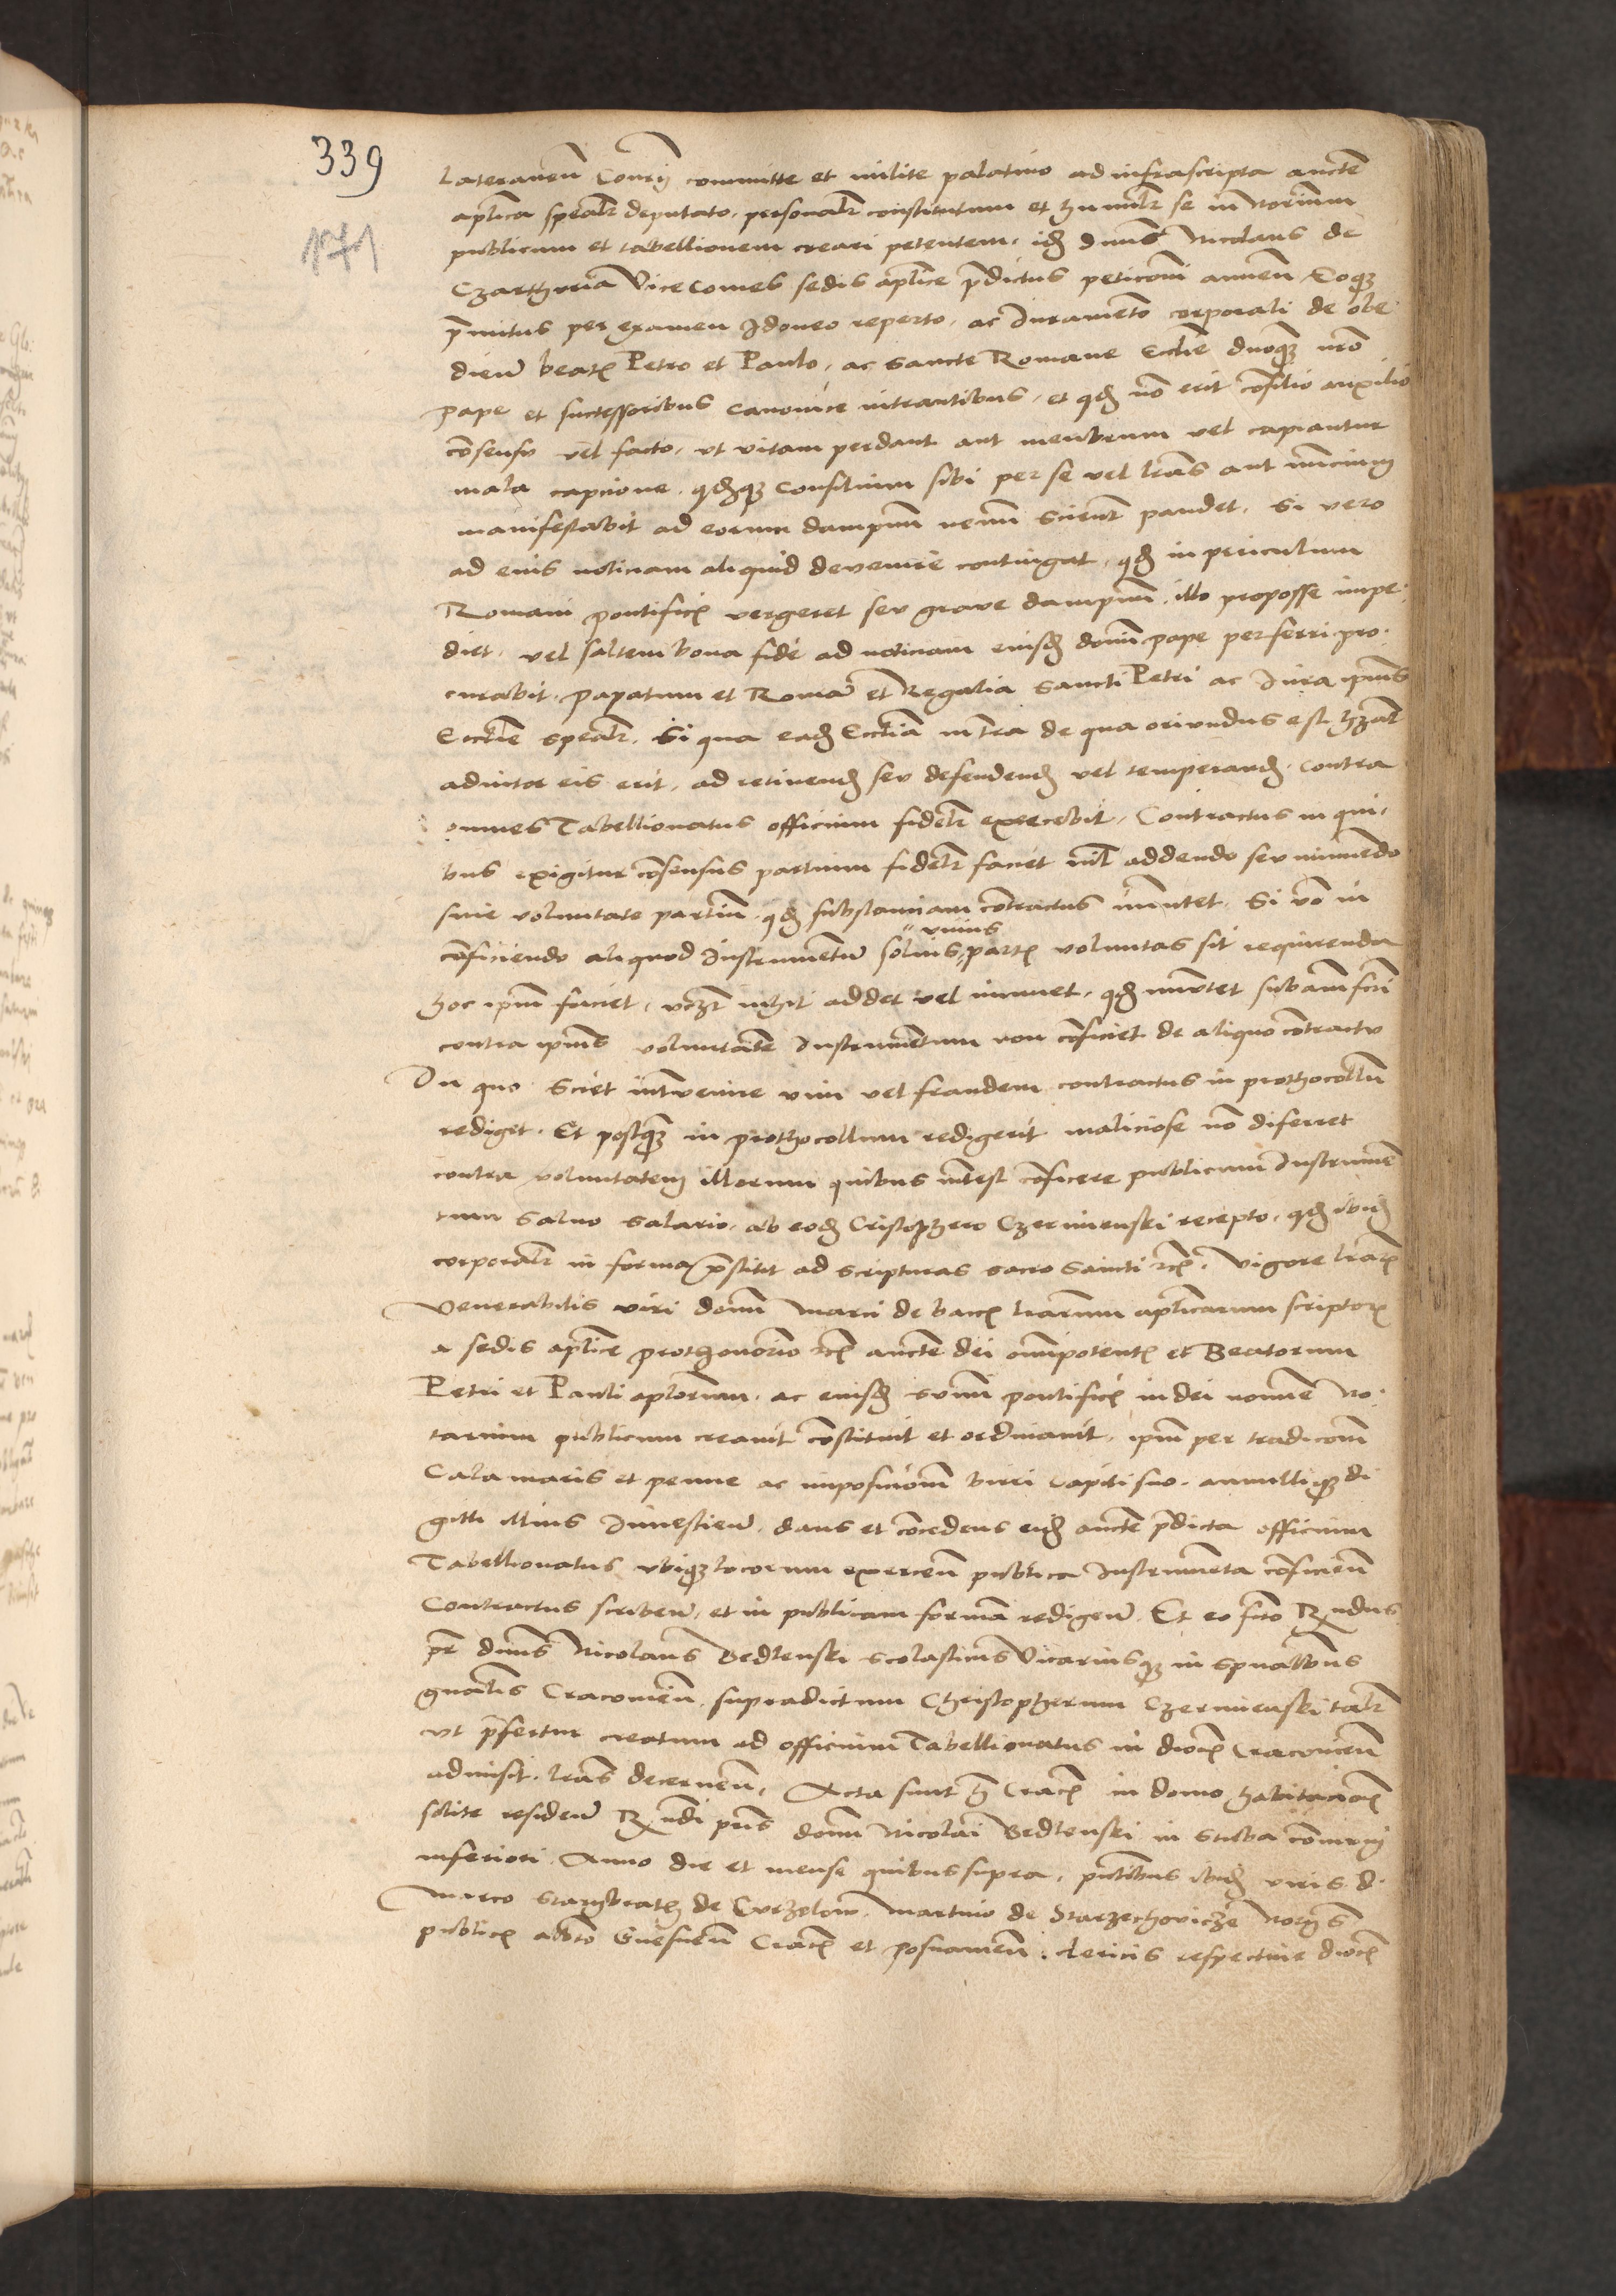 339
171
Lateranen Consilii committe et milite palatino ad infrascripta auctte
aplica spealr deputato, personalr constitutum et humilr se in Norium
publicum et tabellionem creari petentem, idem dnus Nicolaus de
Vicecomes sedis aplice pdictus peticom annuen Eoque
pmitus per examen Idoneo reperto, ac Iuramento corporali de obe
dien beatis Petro et Paulo, ac sancte Romane Ecclie dnoque nro
pape et successoribus canonice intrantibus, et quod no erit consilio auxilio
consensu vel facto, ut vitam perdant aut membrum vel capiantur
mala capcione, quodque consilium sibi per se vel lras aut nuncium
manifestabit ad eorum dampnum nemini scienter pandet, Si vero
ad eius noticiam aliquid devenire contingat, quod in periculum
Romani pontificis vergeret seu grave dampnum, illo proposse impe
diet, vel saltem bona fide ad noticiam eiusdem domini pape perferri pro
curabit, papatum et Roma et Regalia sancti Petri ac Iura ipius
Ecclie spealr, Si qua eadem Ecclia in tra de qua oriundus est hzat
adiutor eis erit, ad retinend seu defendend vel temperand contra
omnes Tabellionatus officium fidelr exercebit, Contractus in qui
bus exigitur consensus partium fidelr faciet nil addendo seu minuendo
sine voluntate partium, quod substanciam contractus immutet, Si vo in
conficiendo aliquod Instrumentum solius unius partis voluntas sit requirenda
hoc ipm faciet, vczt nihil addet vel minuet, quod mutet subam fcti
contra ipius voluntatem Instrumentum non conficiet de aliquo contractu
In quo sciet intervenire vim vel fraudem contractus in prothocollum
rediget. Et postquam in prothocollum redigerit maliciose no diferret
contra voluntatem illorum quibus interest conficere publicum Instrumen
tum Salvo salario, ab eodem Cristophero Czerminski recepto, quod ibidem
corporalr in forma pstitit ad scripturas sacro sancti etc. Vigore lrarum
Venerabilis viri domini Marci de lrarum aplicarum scriptoris
a sedis aplice prothonorio etc auctte dei omnipotentis et Beatorum
Petri et Pauli aplorum, ac eiusdem summi pontificis in dei nomine No
tarium publicum creavit constituit et ordinavit, ipm per tradicom
Calamaris et penne ac imposicom birri capiti suo, annullique di
giti illius Investien, dans et concedens eidem auctte pdicta officium
Tabellionatus ubique locorum exercen publica Instrumenta conficien
Contractus scriben, et in publicam formam redigen. Et eo fcto Rndus
pr dnus Nicolaus Bedlenski scolasticus Vicariusque in spualibus
gnalis Cracovien, supradictum Christopherum Czerminski talr
ut pfertur creatum ad officium Tabellionatus in diocesi Cracovien
admisit, lras decernen, Acta sunt hec Cracovie in domo habitacionis
solite residen Rndi pris domini Nicolai Bedlenski in stuba communi
inferiori Anno die et mense quibus supra, pntibus ibidem viris d.
Marco de Curzelow, Martino de Notariis
publicis Gnesnen Cracovien et posnanien, clericis respective diocesis